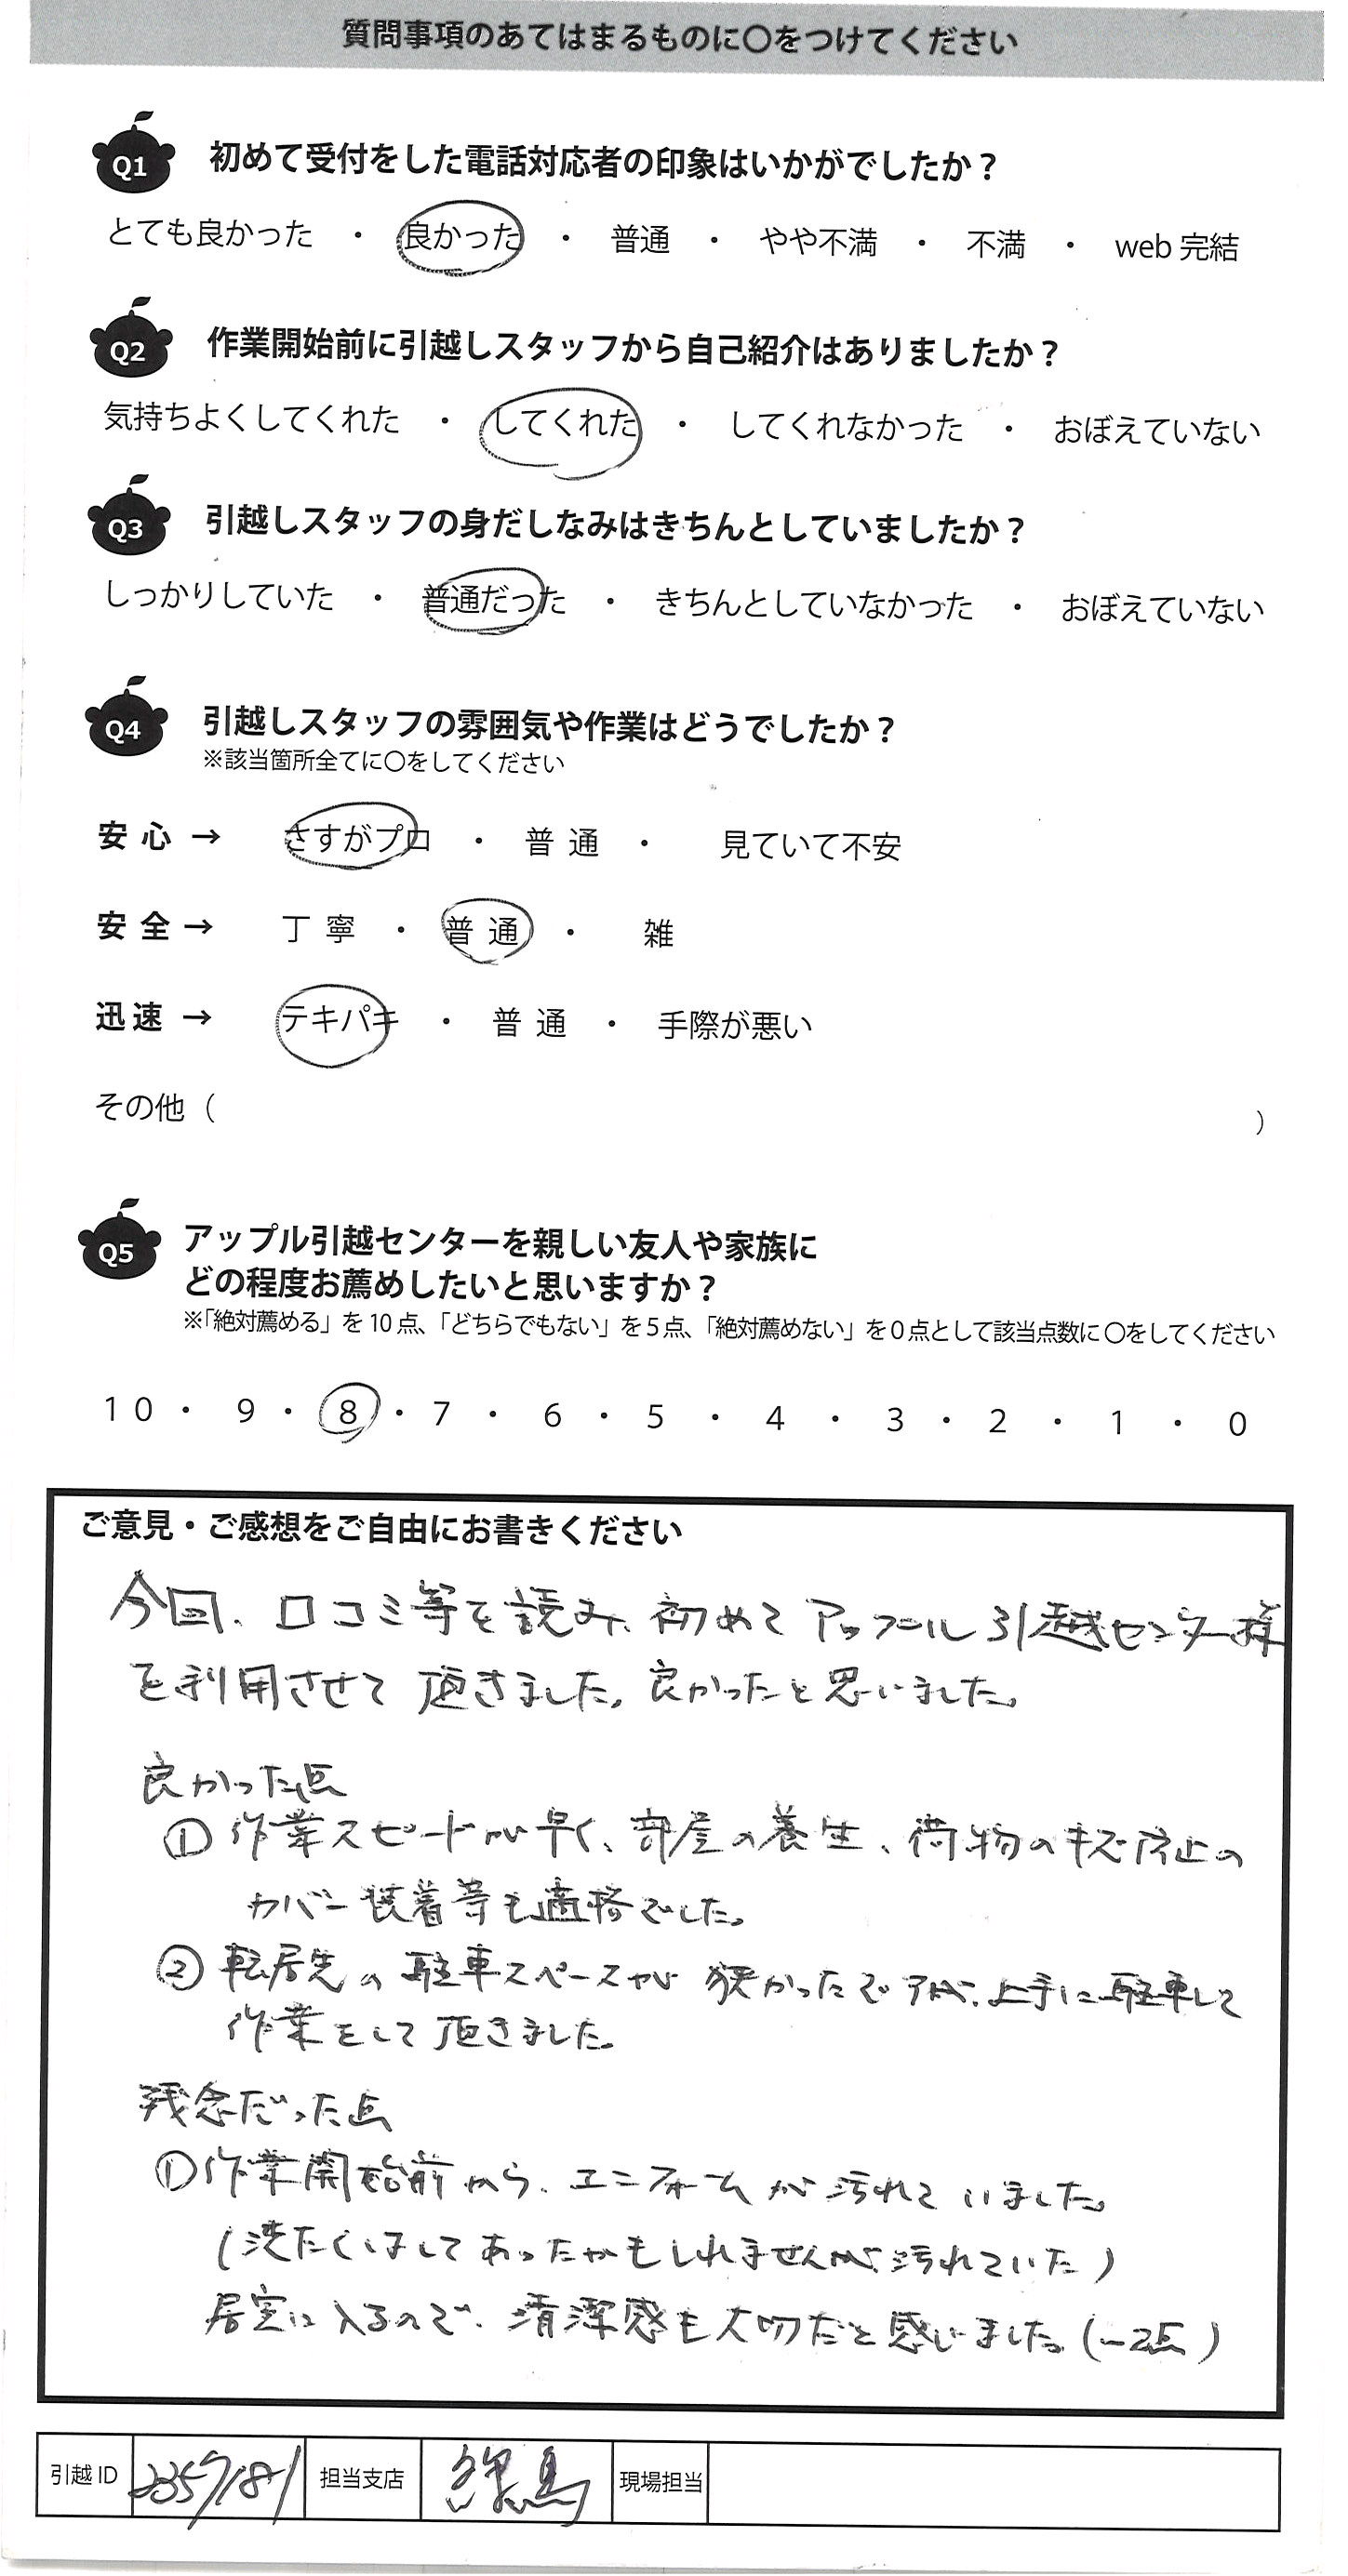 質問事項のあてはまるものに〇をつけてください
Q1 初めて受付をした電話対応者の印象はいかがでしたか？
とても良かった ・ 良かった ・ 普通 ・ やや不満 ・ 不満 ・ web 完結
Q2 作業開始前に引越しスタッフから自己紹介はありましたか？
気持ちよくしてくれた ・ してくれた ・ してくれなかった ・ おぼえていない
Q3 引越しスタッフの身だしなみはきちんとしていましたか？
しっかりしていた ・ 普通だった ・ きちんとしていなかった ・ おぼえていない
Q4 引越しスタッフの雰囲気や作業はどうでしたか？
※該当箇所全てに〇をしてください
安心 → さすがプロ ・ 普通 ・ 見ていて不安
安全 → 丁寧 ・ 普通 ・ 雑
迅速 → テキパキ ・ 普通 ・ 手際が悪い
その他（ ）
Q5 アップル引越センターを親しい友人や家族に
どの程度お薦めしたいと思いますか？
※「絶対薦める」を10点、「どちらでもない」を5点、「絶対薦めない」を0点として該当点数に〇をしてください
10 ・ 9 ・ 8 ・ 7 ・ 6 ・ 5 ・ 4 ・ 3 ・ 2 ・ 1 ・ 0
ご意見・ご感想をご自由にお書きください
今回、口コミ等を読み、初めてアップル引越センター様
を利用させて頂きました。良かったと思いました。
良かった点
①作業スピードが早く、部屋の養生、荷物のキズ防止の
カバー装着等も適格でした。
②転居先の駐車スペースが狭かったですが、上手に駐車して
作業をして頂きました。
残念だった点
①作業開始前から、ユニフォームが汚れていました。
(洗たくはしてあったかもしれませんが、汚れていた)
居室に入るので、清潔感も大切だと感じました。(−2点)
引越ID 2357181 担当支店 練馬 現場担当